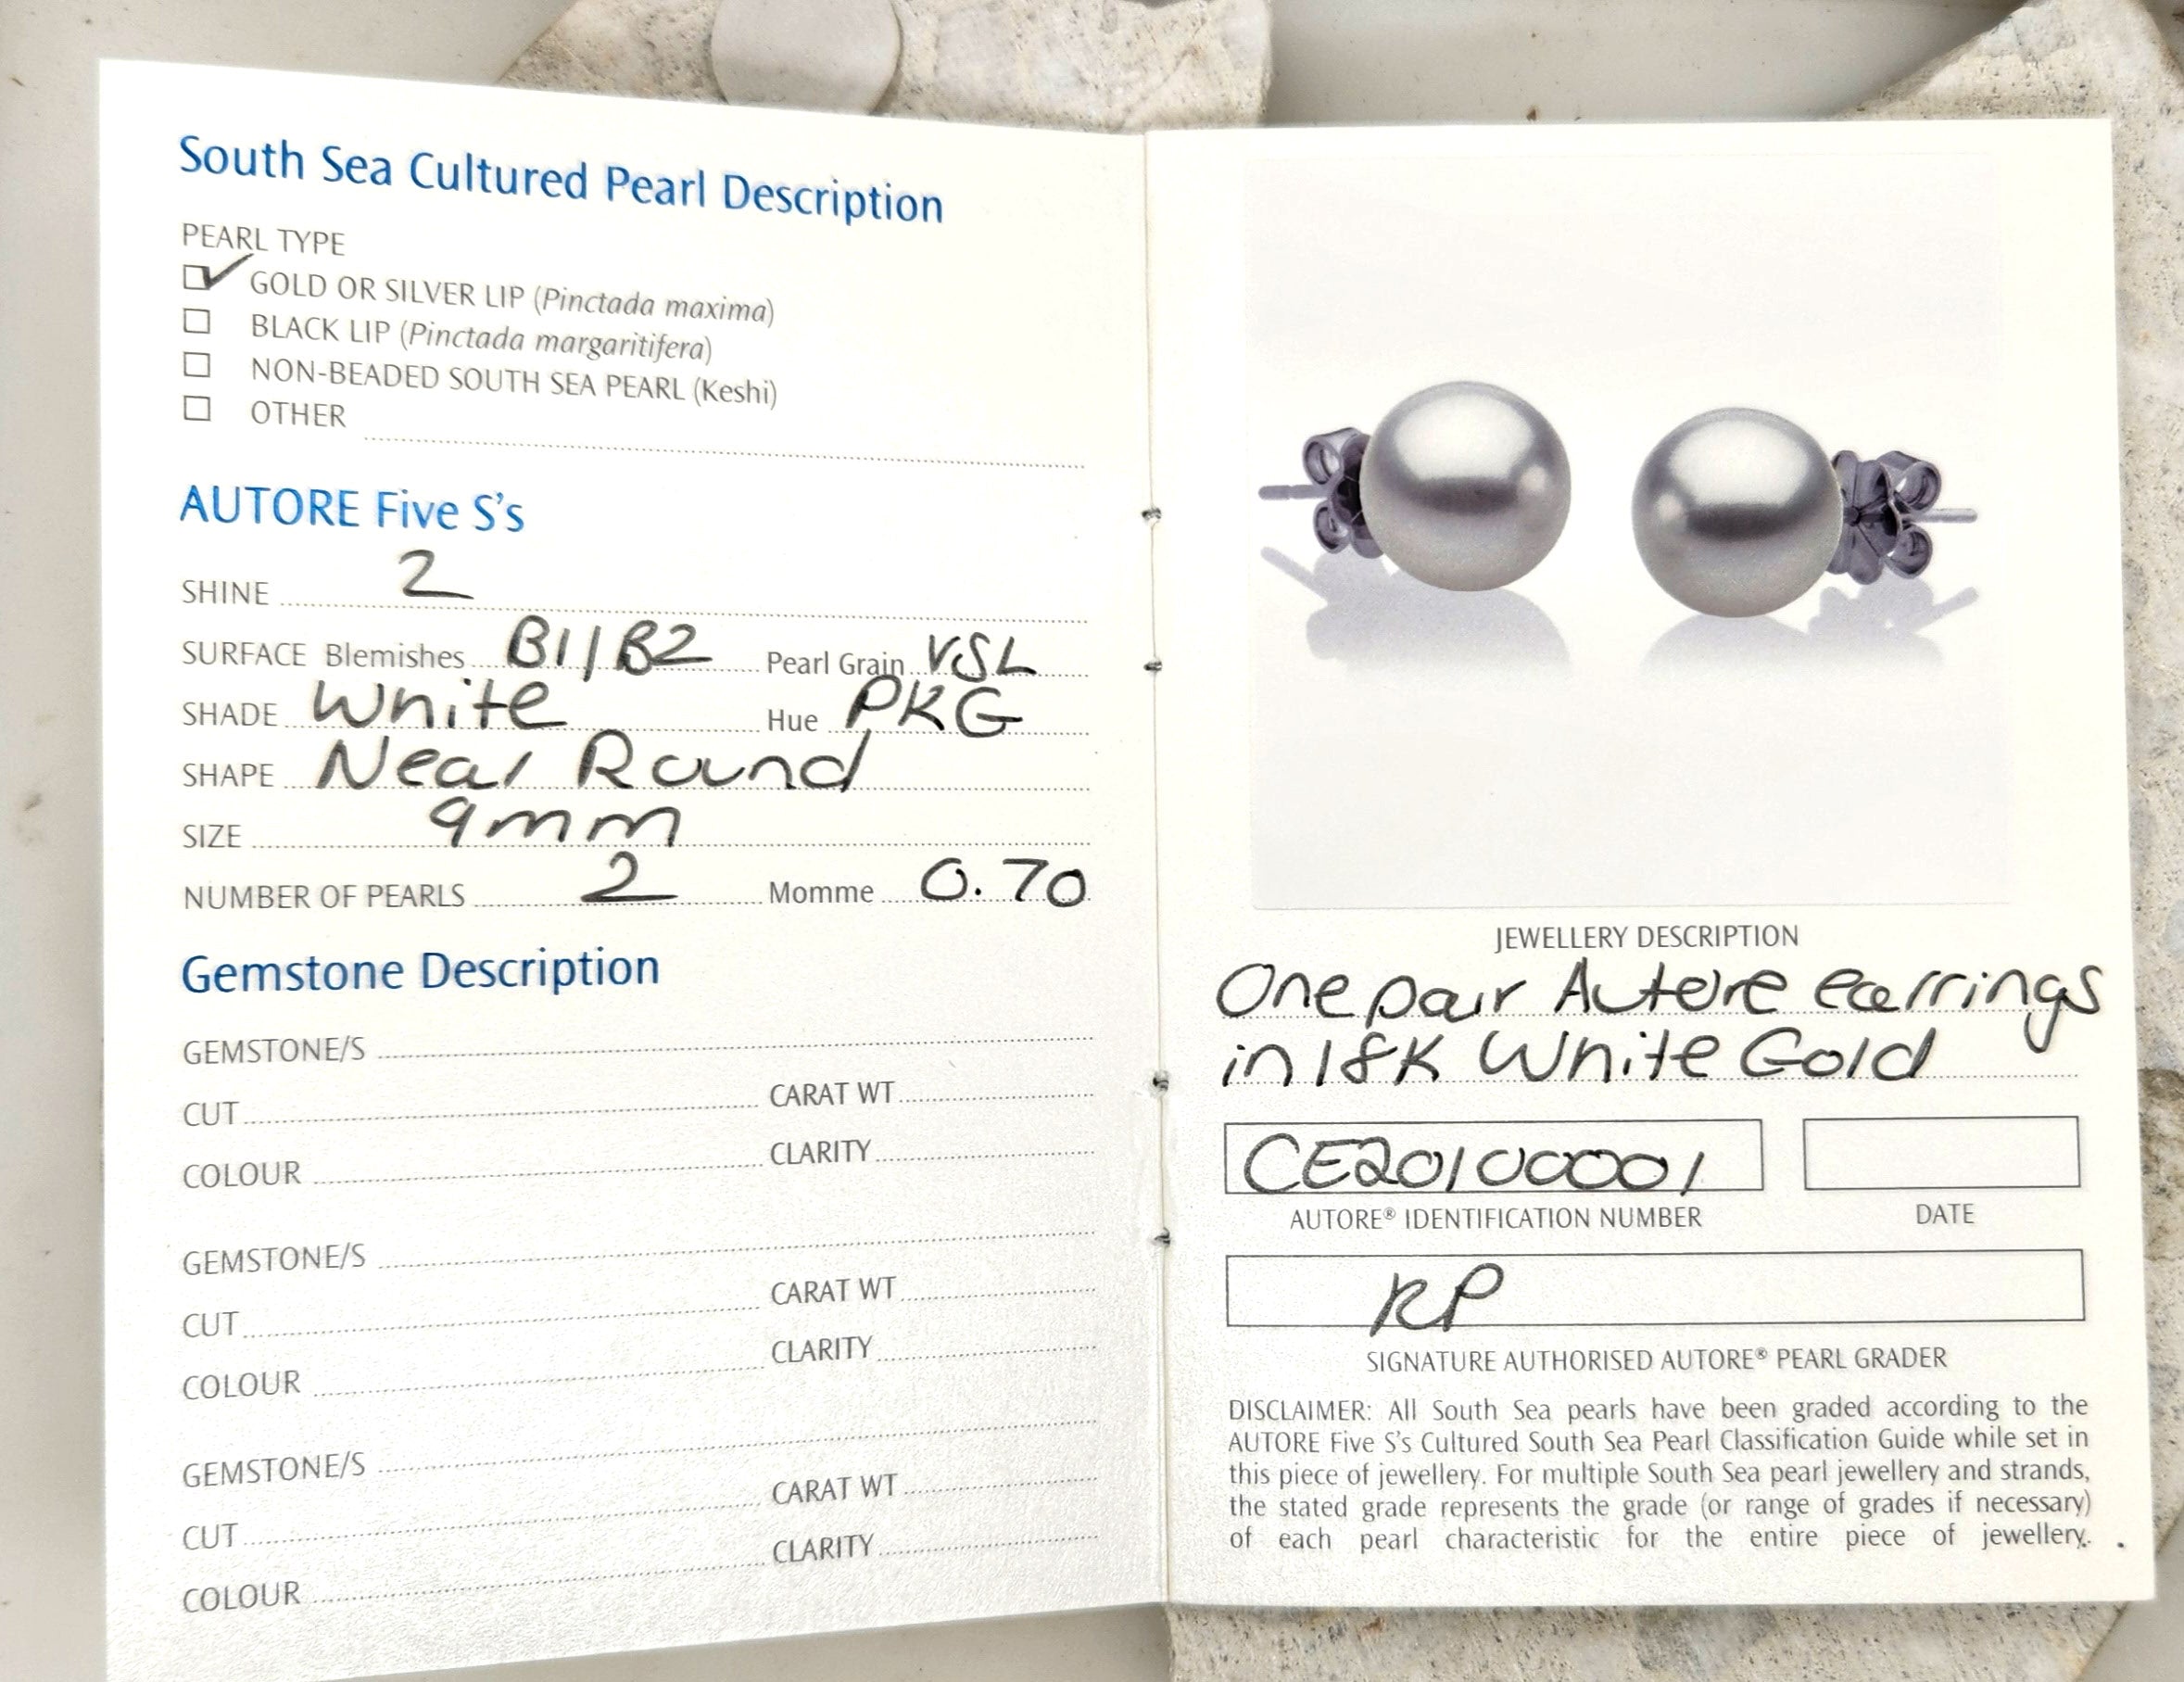 South Sea Cultured Pearl Description
PEARL TYPE
GOLD OR SILVER LIP (Pinctada maxima)
BLACK LIP (Pinctada margaritifera)
NON-BEADED SOUTH SEA PEARL (Keshi)
OTHER
AUTORE Five S's
SHINE 2
SURFACE Blemishes B1/B2 Pearl Grain VSL
SHADE White Hue PKG
SHAPE Near Round
SIZE 9mm
NUMBER OF PEARLS 2 Momme 0.70
Gemstone Description
GEMSTONE/S
CUT CARAT WT
COLOUR CLARITY
GEMSTONE/S
CUT CARAT WT
COLOUR CLARITY
GEMSTONE/S
CUT CARAT WT
COLOUR CLARITY
JEWELLERY DESCRIPTION
One pair Autore earrings
in 18K White Gold
CE20100001
AUTORE® IDENTIFICATION NUMBER DATE
RP
SIGNATURE AUTHORISED AUTORE® PEARL GRADER
DISCLAIMER: All South Sea pearls have been graded according to the
AUTORE Five S's Cultured South Sea Pearl Classification Guide while set in
this piece of jewellery. For multiple South Sea pearl jewellery and strands,
the stated grade represents the grade (or range of grades if necessary)
of each pearl characteristic for the entire piece of jewellery.